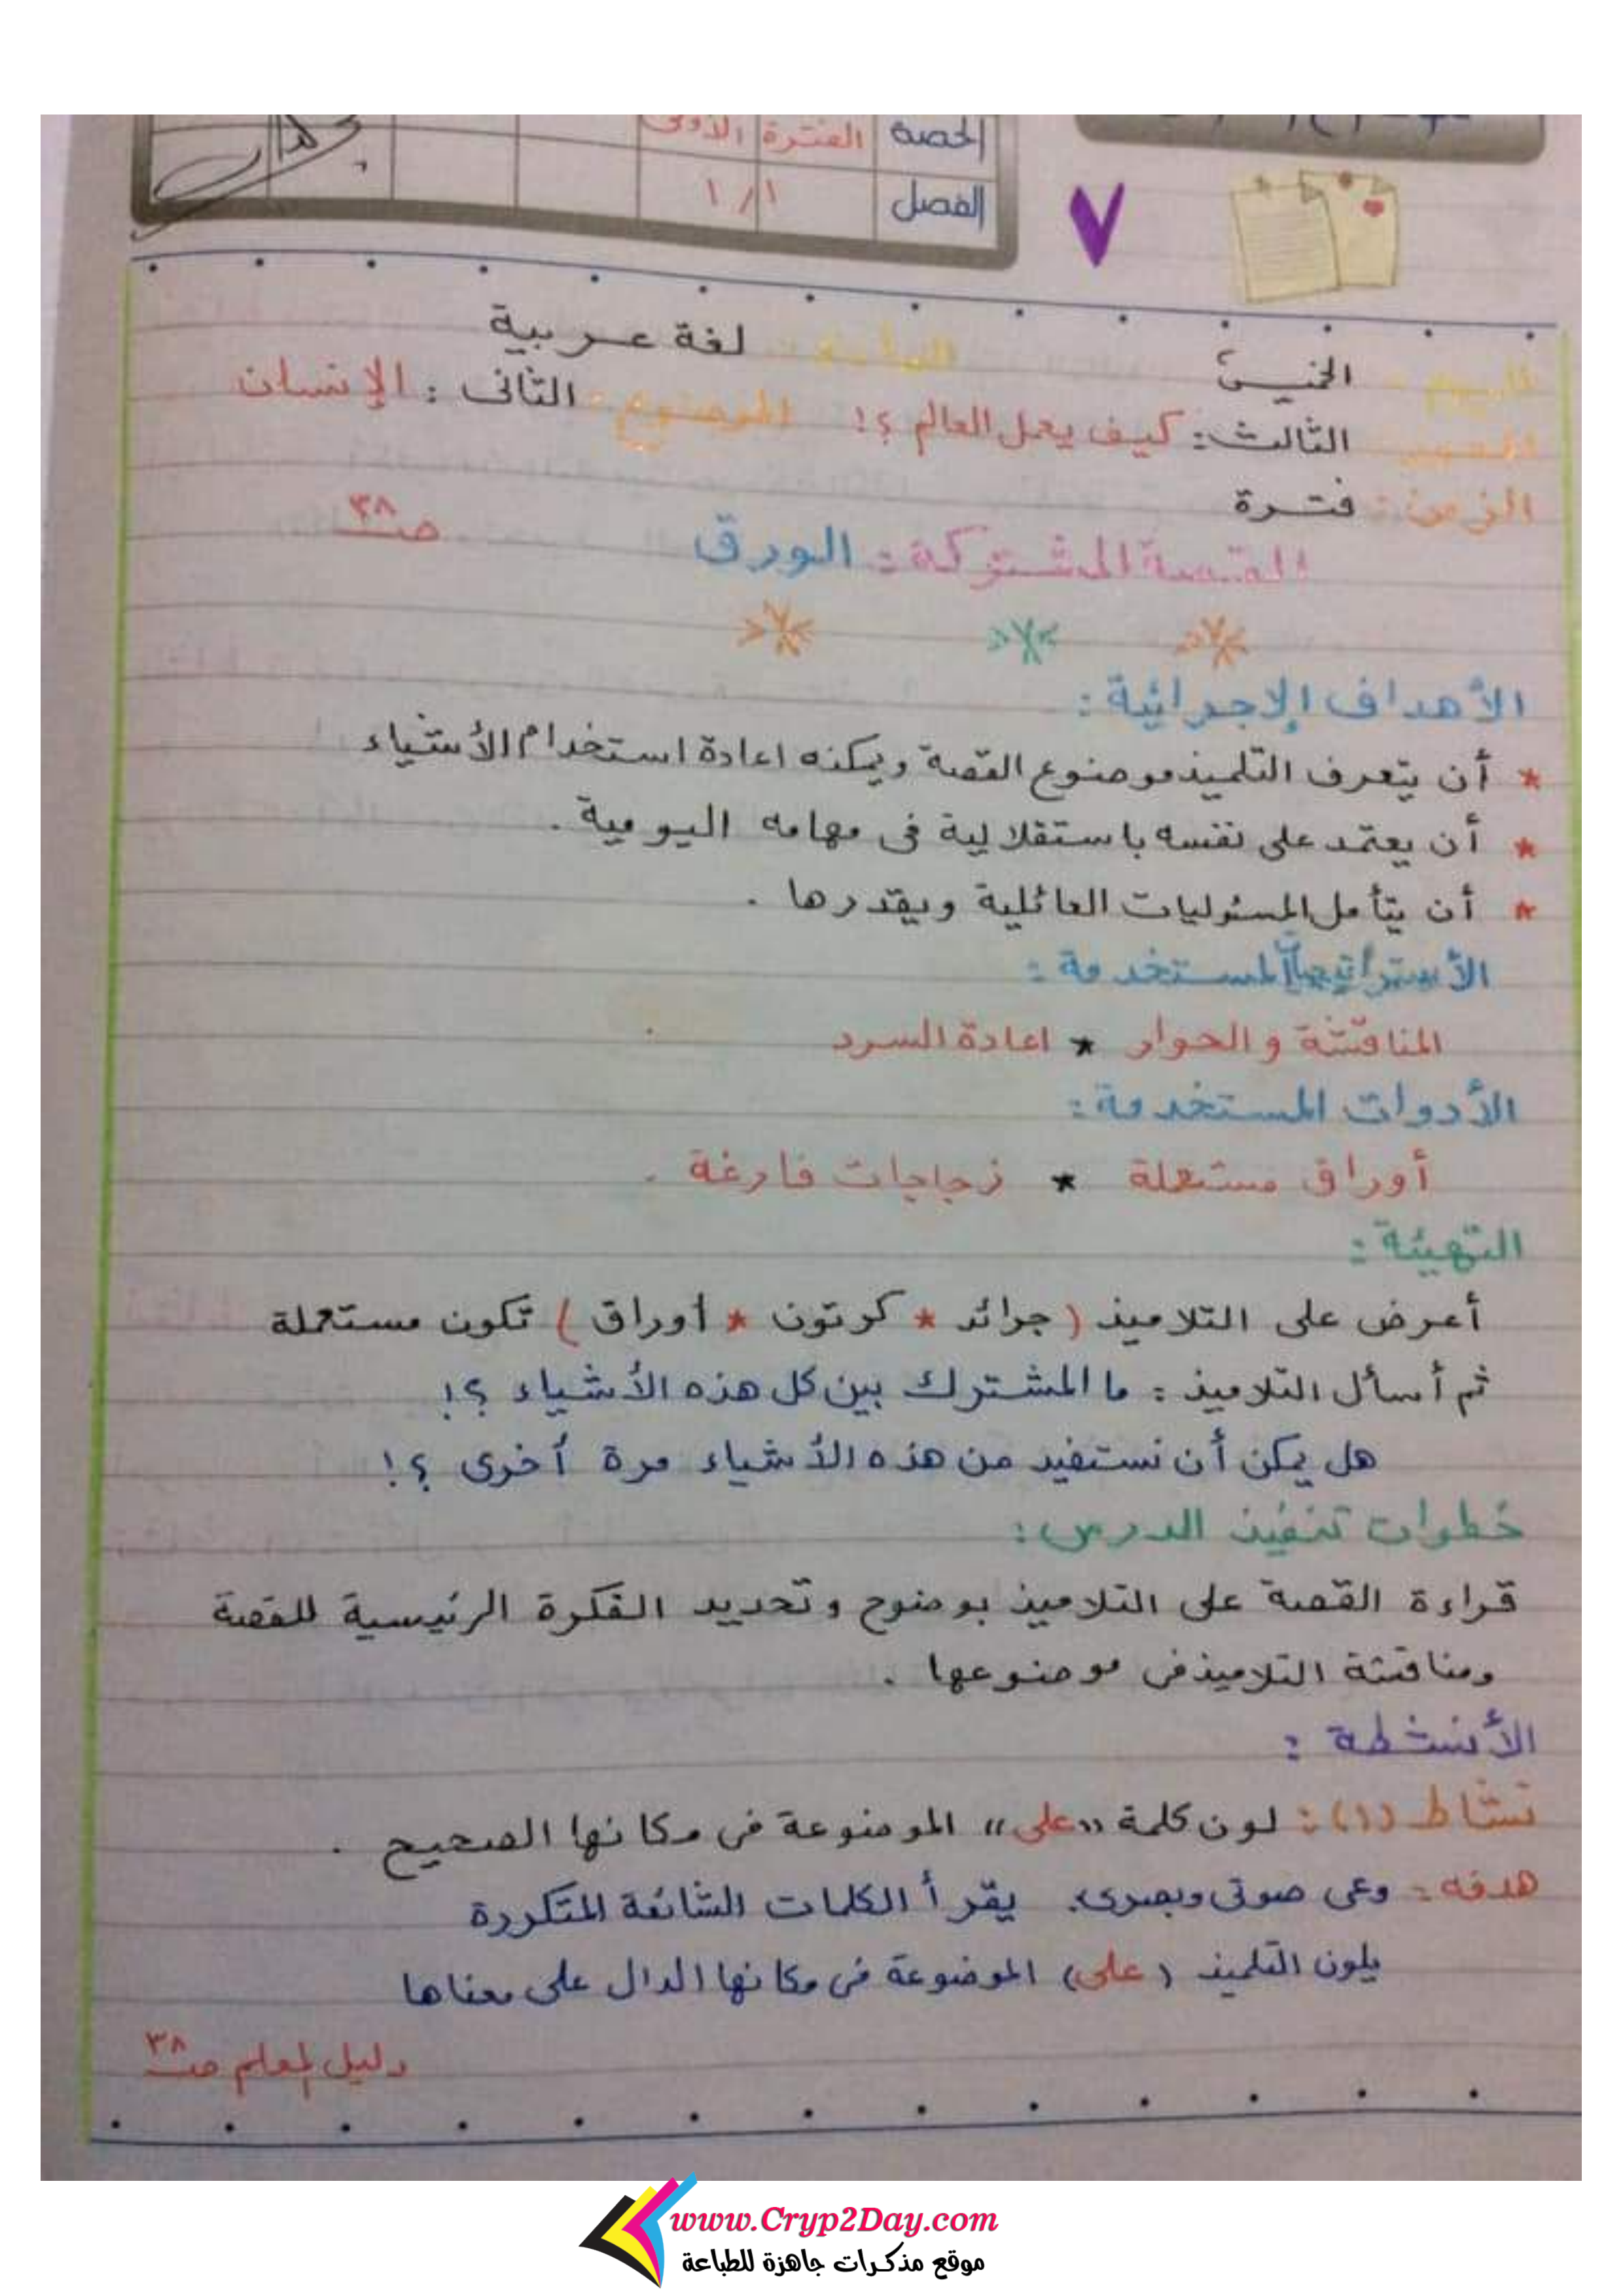 الحصة الفترة الأولى
الفصل ١/١
اليوم: الخميس المادة: لغة عربية
المحور الثالث: كيف يعمل العالم ؟! الموضوع: الثانى: الإنسان
الزمن: فترة
القصة المشتركة: الورق صـ ٣٨
الأهداف الإجرائية:
* أن يتعرف التلميذ موضوع القصة ويمكنه اعادة استخدام الأشياء
* أن يعتمد على نفسه باستقلالية فى مهامه اليومية.
* أن يتأمل المسئوليات العائلية ويقدرها.
الأستراتيجيات المستخدمة:
المناقشة والحوار * اعادة السرد
الأدوات المستخدمة:
أوراق مستعملة * زجاجات فارغة.
التهيئة:
أعرض على التلاميذ (جرائد * كرتون * أوراق) تكون مستعملة
ثم أسأل التلاميذ: ما المشترك بين كل هذه الأشياء ؟!
هل يمكن أن نستفيد من هذه الأشياء مرة أخرى ؟!
خطوات تنفيذ الدرس:
قراءة القصة على التلاميذ بوضوح وتحديد الفكرة الرئيسية للقصة
ومناقشة التلاميذ فى موضوعها.
الأنشطة:
نشاط (١): لون كلمة "على" الموضوعة فى مكانها الصحيح.
هدفه: وعى صوتى وبصرى. يقرأ الكلمات الشائعة المتكررة
يلون التلميذ (على) الموضوعة فى مكانها الدال على معناها
دليل المعلم صـ ٣٨
www.Cryp2Day.com
موقع مذكرات جاهزة للطباعة